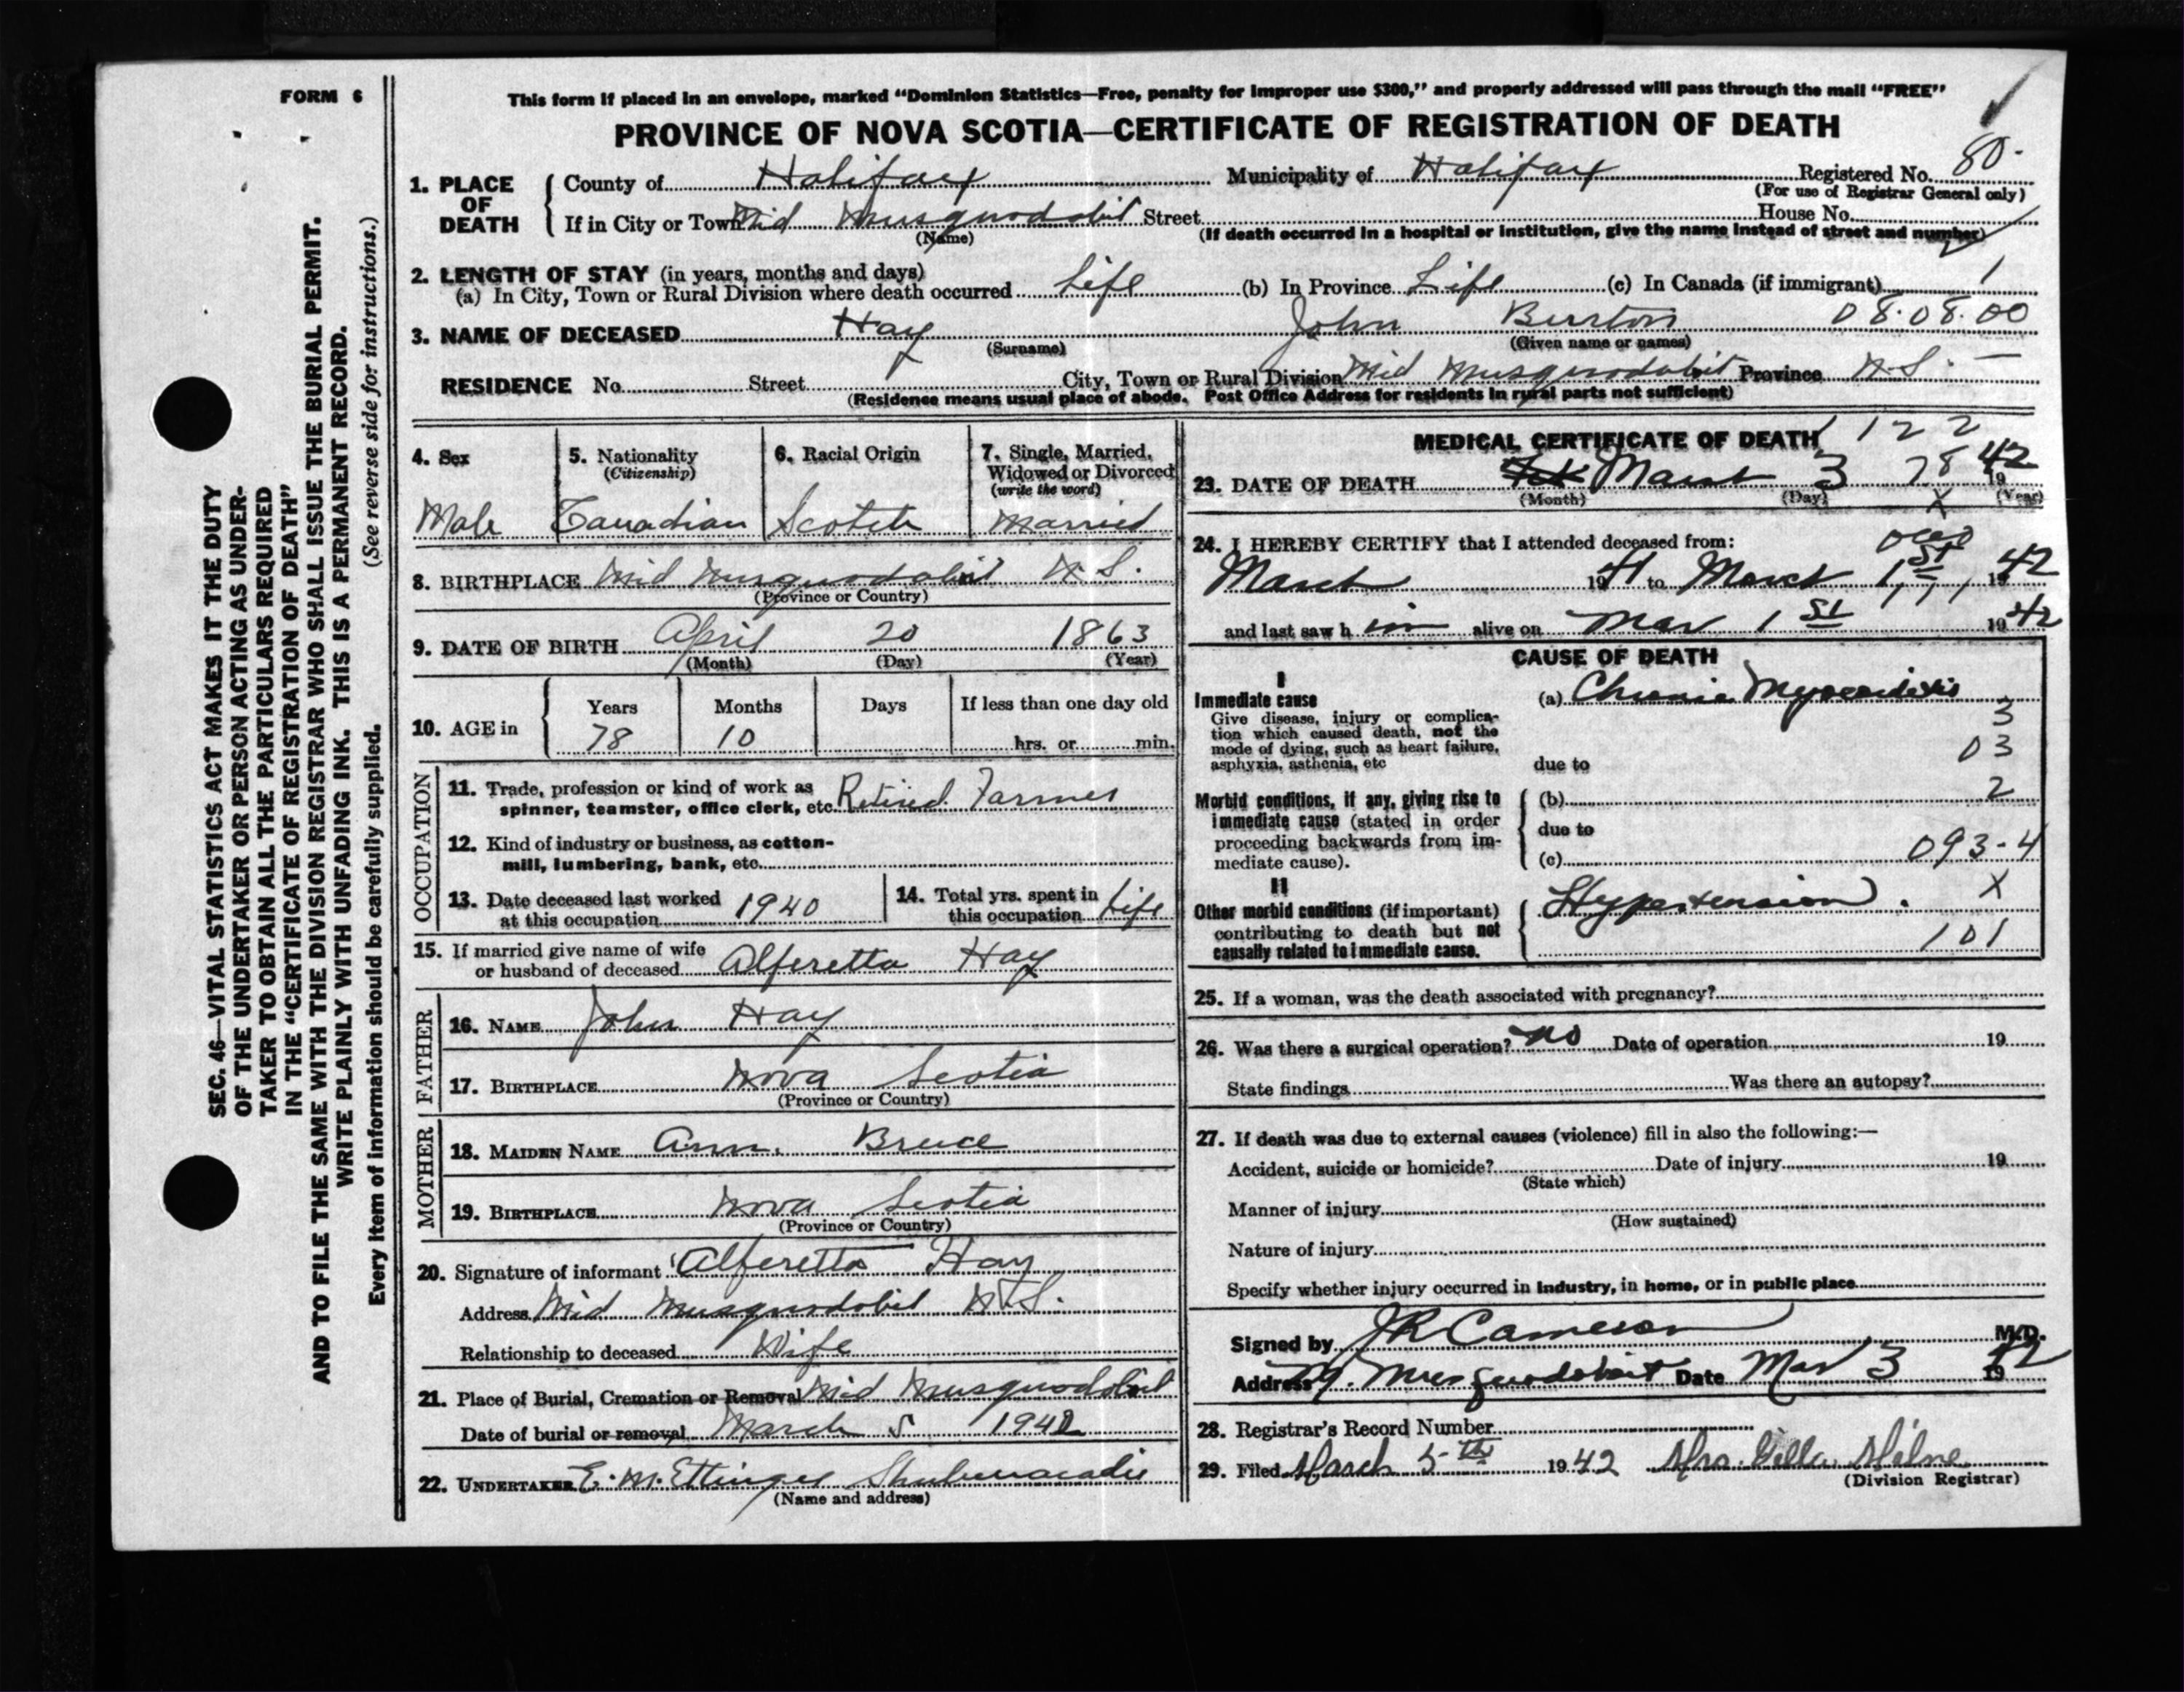 FORM 6
This form if placed in an envelope, marked “Dominion Statistics—Free, penalty for improper use $300,” and properly addressed will pass through the mail “FREE”
PROVINCE OF NOVA SCOTIA—CERTIFICATE OF REGISTRATION OF DEATH
SEC. 46—VITAL STATISTICS ACT MAKES IT THE DUTY
OF THE UNDERTAKER OR PERSON ACTING AS UNDER-
TAKER TO OBTAIN ALL THE PARTICULARS REQUIRED
IN THE “CERTIFICATE OF REGISTRATION OF DEATH”
AND TO FILE THE SAME WITH THE DIVISION REGISTRAR WHO SHALL ISSUE THE BURIAL PERMIT.
WRITE PLAINLY WITH UNFADING INK. THIS IS A PERMANENT RECORD.
Every item of information should be carefully supplied. (See reverse side for instructions.)
1. PLACE OF DEATH
County of Halifax Municipality of Halifax Registered No. 80.
(For use of Registrar General only)
If in City or Town Mid Musquodobit Street House No.
(Name) (If death occurred in a hospital or institution, give the name instead of street and number)
2. LENGTH OF STAY (in years, months and days)
(a) In City, Town or Rural Division where death occurred Life (b) In Province Life (c) In Canada (if immigrant) 1
3. NAME OF DECEASED Hay John Burton 08.08.00
(Surname) (Given name or names)
RESIDENCE No. Street City, Town or Rural Division Mid Musquodobit Province N.S. —
(Residence means usual place of abode. Post Office Address for residents in rural parts not sufficient)
4. Sex
Male
5. Nationality
(Citizenship)
Canadian
6. Racial Origin
Scotch
7. Single, Married,
Widowed or Divorced
(write the word)
Married
8. BIRTHPLACE Mid Musquodobit N.S.
(Province or Country)
9. DATE OF BIRTH April 20 1863
(Month) (Day) (Year)
10. AGE in Years Months Days If less than one day old
78 10 hrs. or min.
OCCUPATION
11. Trade, profession or kind of work as
spinner, teamster, office clerk, etc. Retired Farmer
12. Kind of industry or business, as cotton-
mill, lumbering, bank, etc.
13. Date deceased last worked
at this occupation 1940
14. Total yrs. spent in
this occupation Life
15. If married give name of wife
or husband of deceased Alferetta Hay
FATHER
16. NAME John Hay
17. BIRTHPLACE Nova Scotia
(Province or Country)
MOTHER
18. MAIDEN NAME Ann. Bruce
19. BIRTHPLACE Nova Scotia
(Province or Country)
20. Signature of informant Alferetta Hay
Address Mid Musquodobit N.S.
Relationship to deceased Wife
21. Place of Burial, Cremation or Removal Mid Musquodobit
Date of burial or removal March 5 1942
22. UNDERTAKER E. M. Ettinger Shubenacadie
(Name and address)
MEDICAL CERTIFICATE OF DEATH 122
23. DATE OF DEATH March 3 78 1942
(Month) (Day) x (Year)
24. I HEREBY CERTIFY that I attended deceased from:
March 1941 to March 1st, 1942
and last saw h im alive on Mar 1st 1942
CAUSE OF DEATH
I
Immediate cause
Give disease, injury or complica-
tion which caused death, not the
mode of dying, such as heart failure,
asphyxia, asthenia, etc
(a) Chronic Myocarditis
3
03
due to
Morbid conditions, if any, giving rise to
immediate cause (stated in order
proceeding backwards from im-
mediate cause).
(b) 2
due to
(c) 093-4
II
Other morbid conditions (if important)
contributing to death but not
causally related to immediate cause.
Hypertension. X
101
25. If a woman, was the death associated with pregnancy?
26. Was there a surgical operation? no Date of operation 19
State findings Was there an autopsy?
27. If death was due to external causes (violence) fill in also the following:—
Accident, suicide or homicide? Date of injury 19
(State which)
Manner of injury
(How sustained)
Nature of injury
Specify whether injury occurred in industry, in home, or in public place
Signed by JR Cameron M.D.
Address M. Musquodoboit Date Mar 3 1942
28. Registrar's Record Number
29. Filed March 5th 1942 Mrs. Milne
(Division Registrar)